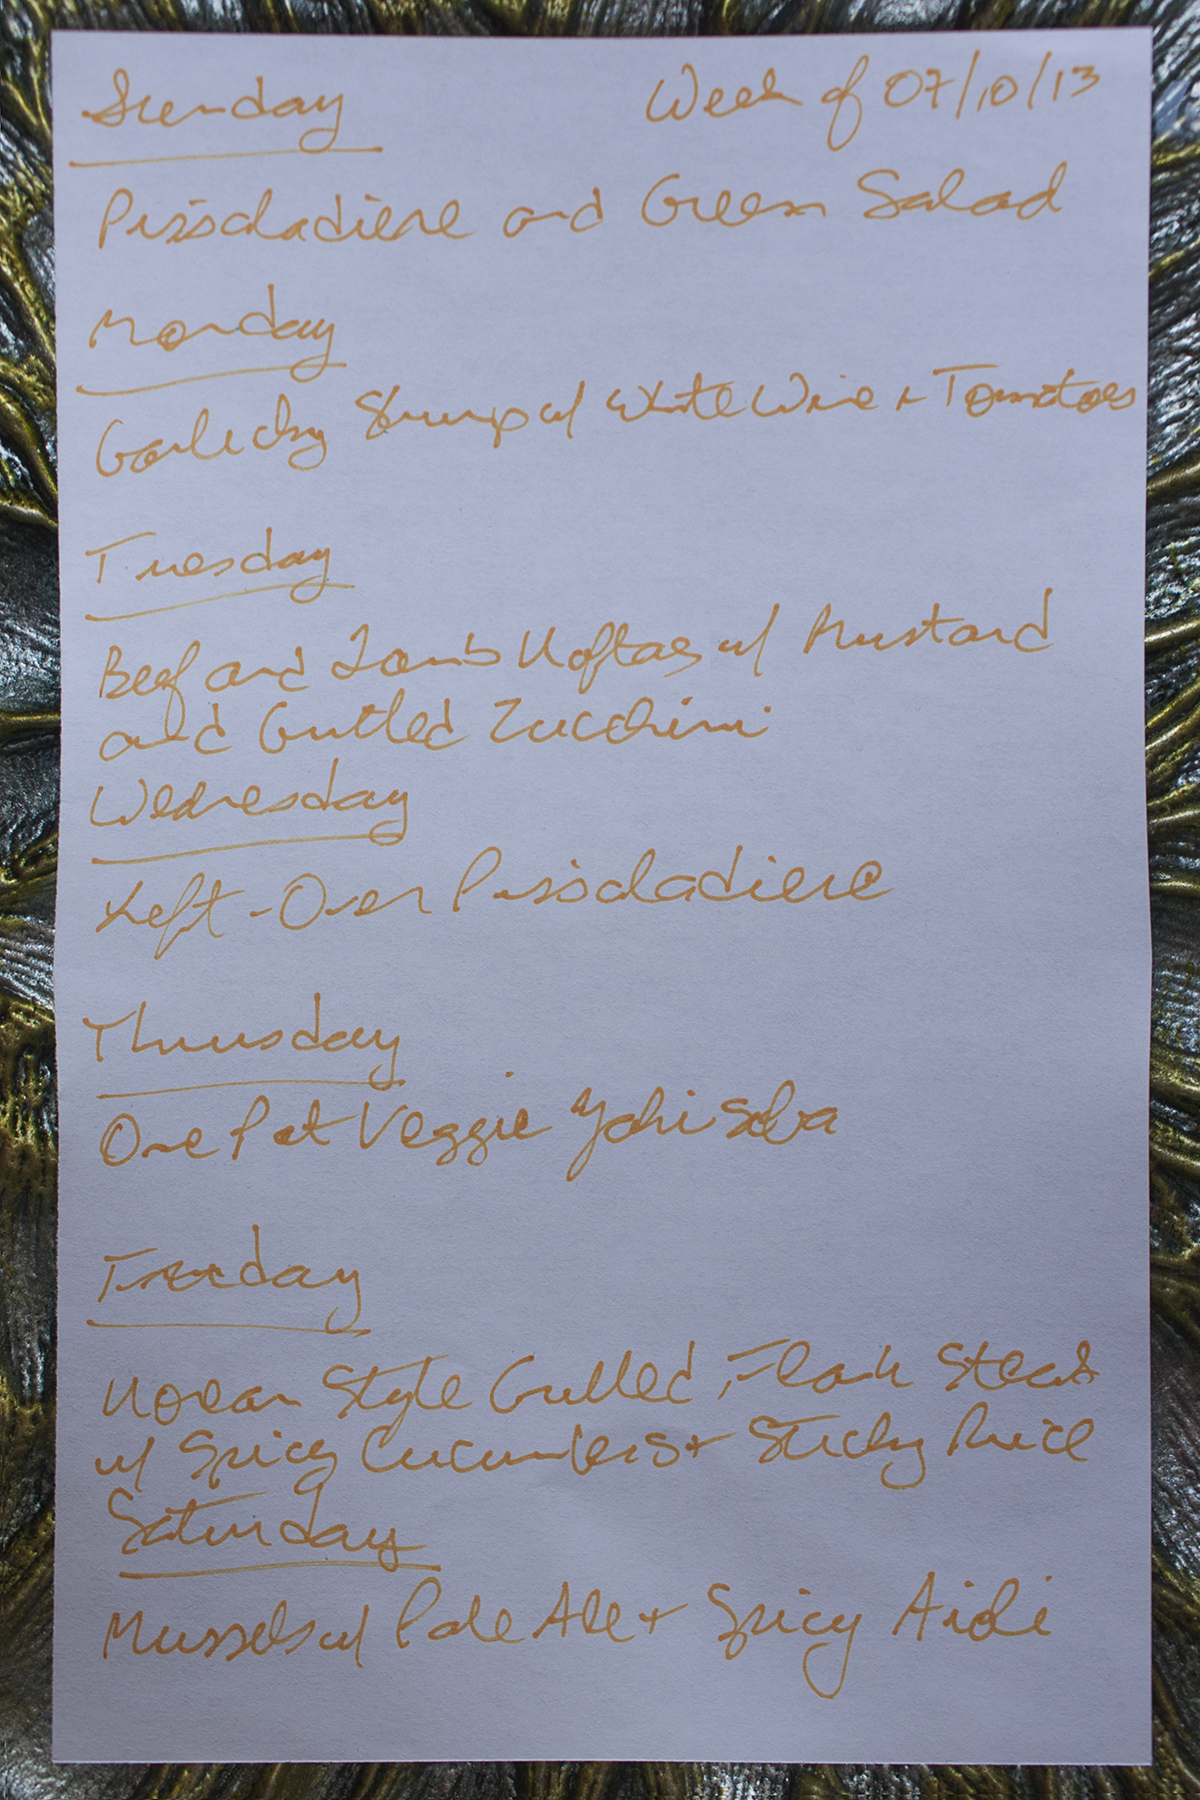 Sunday Week of 07/10/13
Pissaladiere and Green Salad
Monday
Garlicky Shrimp w/ White Wine + Tomatoes
Tuesday
Beef and Lamb Koftas w/ Mustard
and Grilled Zucchini
Wednesday
Left-Over Pissaladiere
Thursday
One Pot Veggie Yakisoba
Korean Style Grilled Flank Steak
w/ Spicy Cucumbers + Sticky Rice
Saturday
Mussels w/ Pale Ale + Spicy Aioli